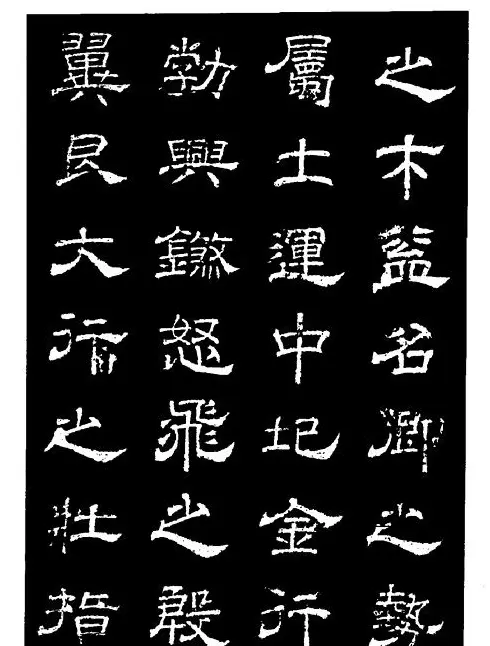 之木益名卿之勢
屬土運中圮金行
勃興怒飛之殷
翼艮大之壯指